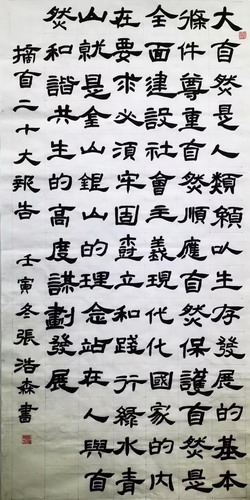 大自然是人類賴以生存發展的基本
條件尊重自然順應自然保護自然是
全面建設社會主義現代化國家的内
在要求必須牢固樹立和踐行綠水青
山就是金山銀山的理念站在人與自
然和諧共生的高度謀劃發展
摘自二十大報告 壬寅冬張浩森書